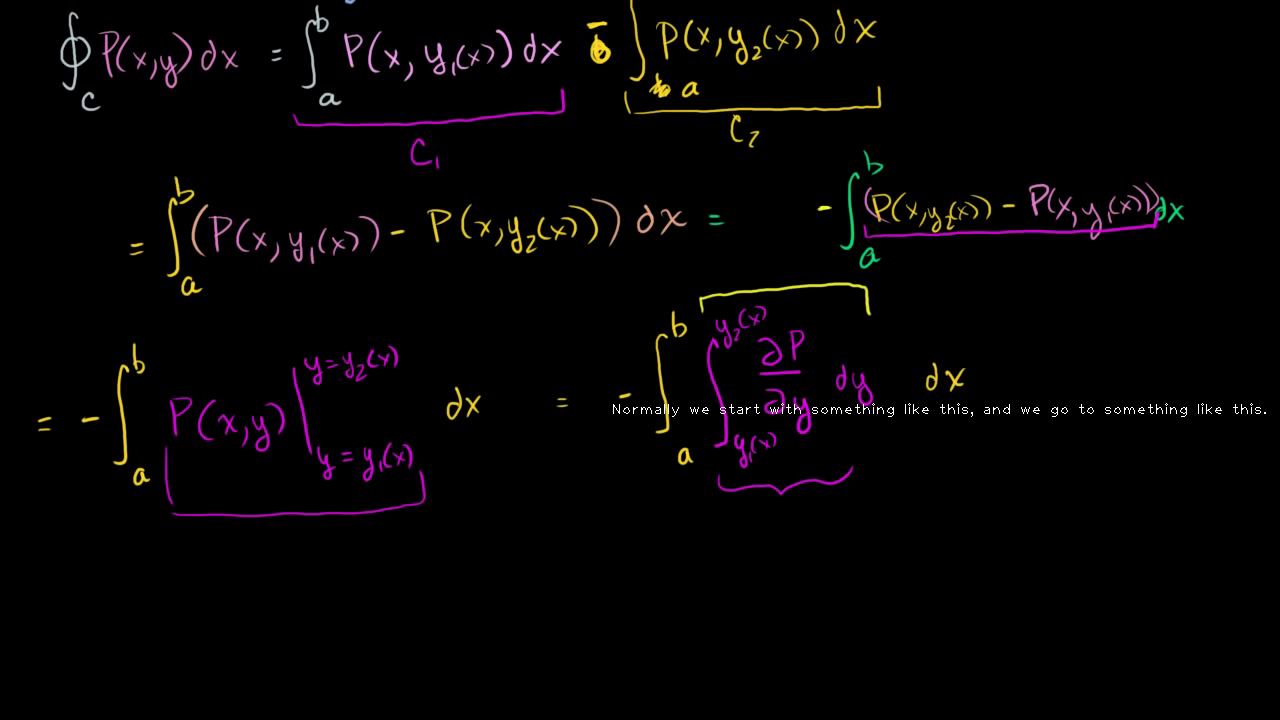 ∮_C P(x,y) dx = ∫_a^b P(x, y₁(x)) dx - ∫_a P(x, y₂(x)) dx
C₁ C₂
= ∫_a^b (P(x, y₁(x)) - P(x, y₂(x))) dx = - ∫_a^b (P(x, y₂(x)) - P(x, y₁(x))) dx
= - ∫_a^b P(x,y) |_{y=y₁(x)}^{y=y₂(x)} dx = - ∫_a^b ∫_{y₁(x)}^{y₂(x)} ∂P/∂y dy dx
Normally we start with something like this, and we go to something like this.